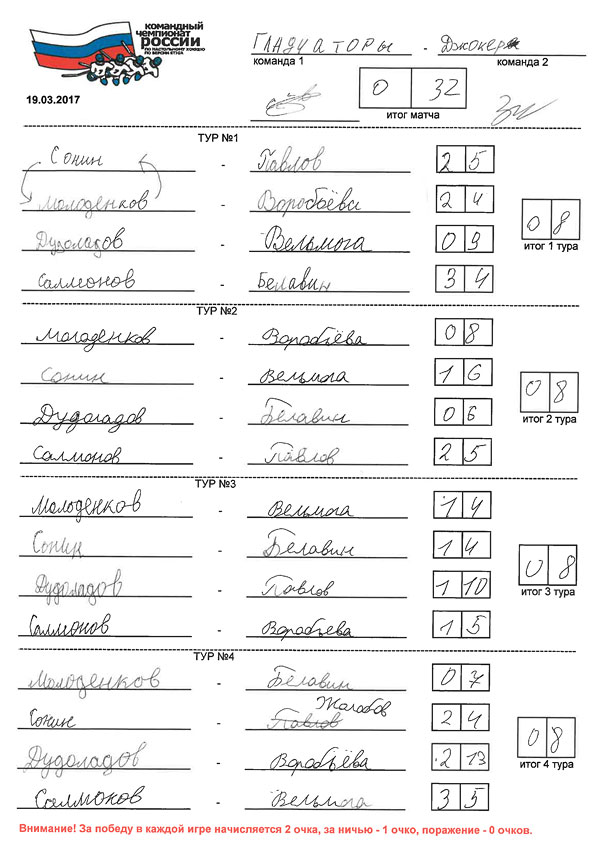 КОМАНДНЫЙ
ЧЕМПИОНАТ
РОССИИ
ПО НАСТОЛЬНОМУ ХОККЕЮ
ПО ВЕРСИИ
Гладиаторы - Джокер
команда 1 команда 2
0 32
19.03.2017
итог матча
ТУР №1
Сонин - Павлов 2 5
Молоденков - Воробьёва 2 4
Дудоладов - Вельмога 0 9
Саллионов - Белавин 3 4
0 8
итог 1 тура
ТУР №2
Молоденков - Воробьёва 0 8
Сонин - Вельмога 1 6
Дудоладов - Белавин 0 6
Саллионов - Павлов 2 5
0 8
итог 2 тура
ТУР №3
Молоденков - Вельмога 1 4
Сонин - Белавин 1 4
Дудоладов - Павлов 1 10
Саллионов - Воробьева 1 5
0 8
итог 3 тура
ТУР №4
Молоденков - Белавин 0 7
Жалобов
Сонин - Павлов 2 4
Дудоладов - Воробьёва 2 13
Саллионов - Вельмога 3 5
0 8
итог 4 тура
Внимание! За победу в каждой игре начисляется 2 очка, за ничью - 1 очко, поражение - 0 очков.